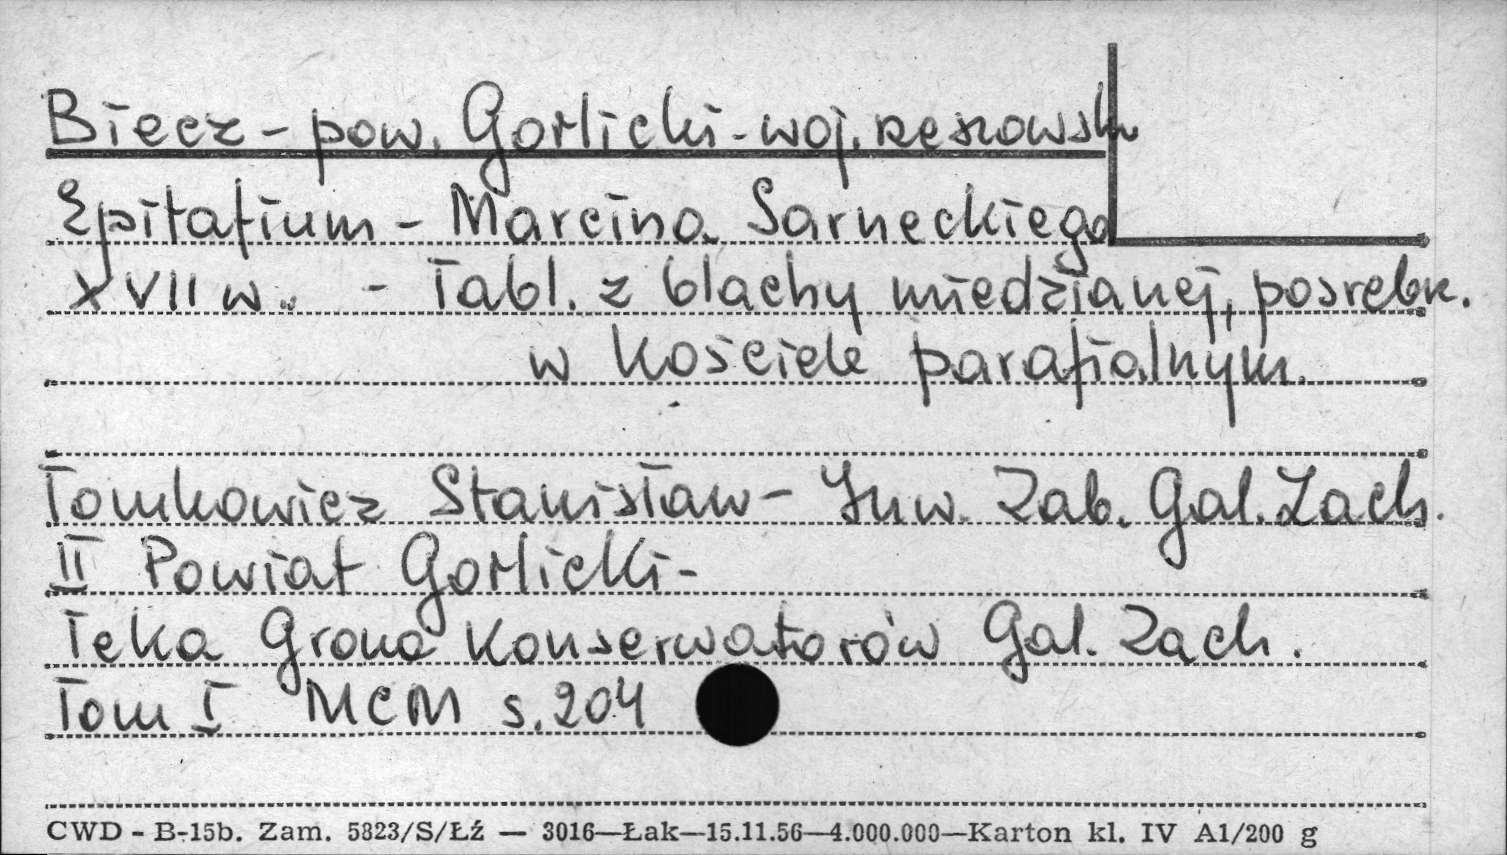 Biecz - pow. Gorlicki - woj. rzeszowsk
Epitafium - Marcina Sarneckiego
XVII w. - Tabl. z blachy miedzianej, posrebrz.
w kościele parafialnym.
Tomkowicz Stanisław - Inw. Zab. Gal. Zach.
II Powiat Gorlicki -
Teka Grona Konserwatorów Gal. Zach.
Tom I MCM s. 204
CWD - B-15b. Zam. 5823/S/Łź — 3016—Łak—15.11.56—4.000.000—Karton kl. IV A1/200 g